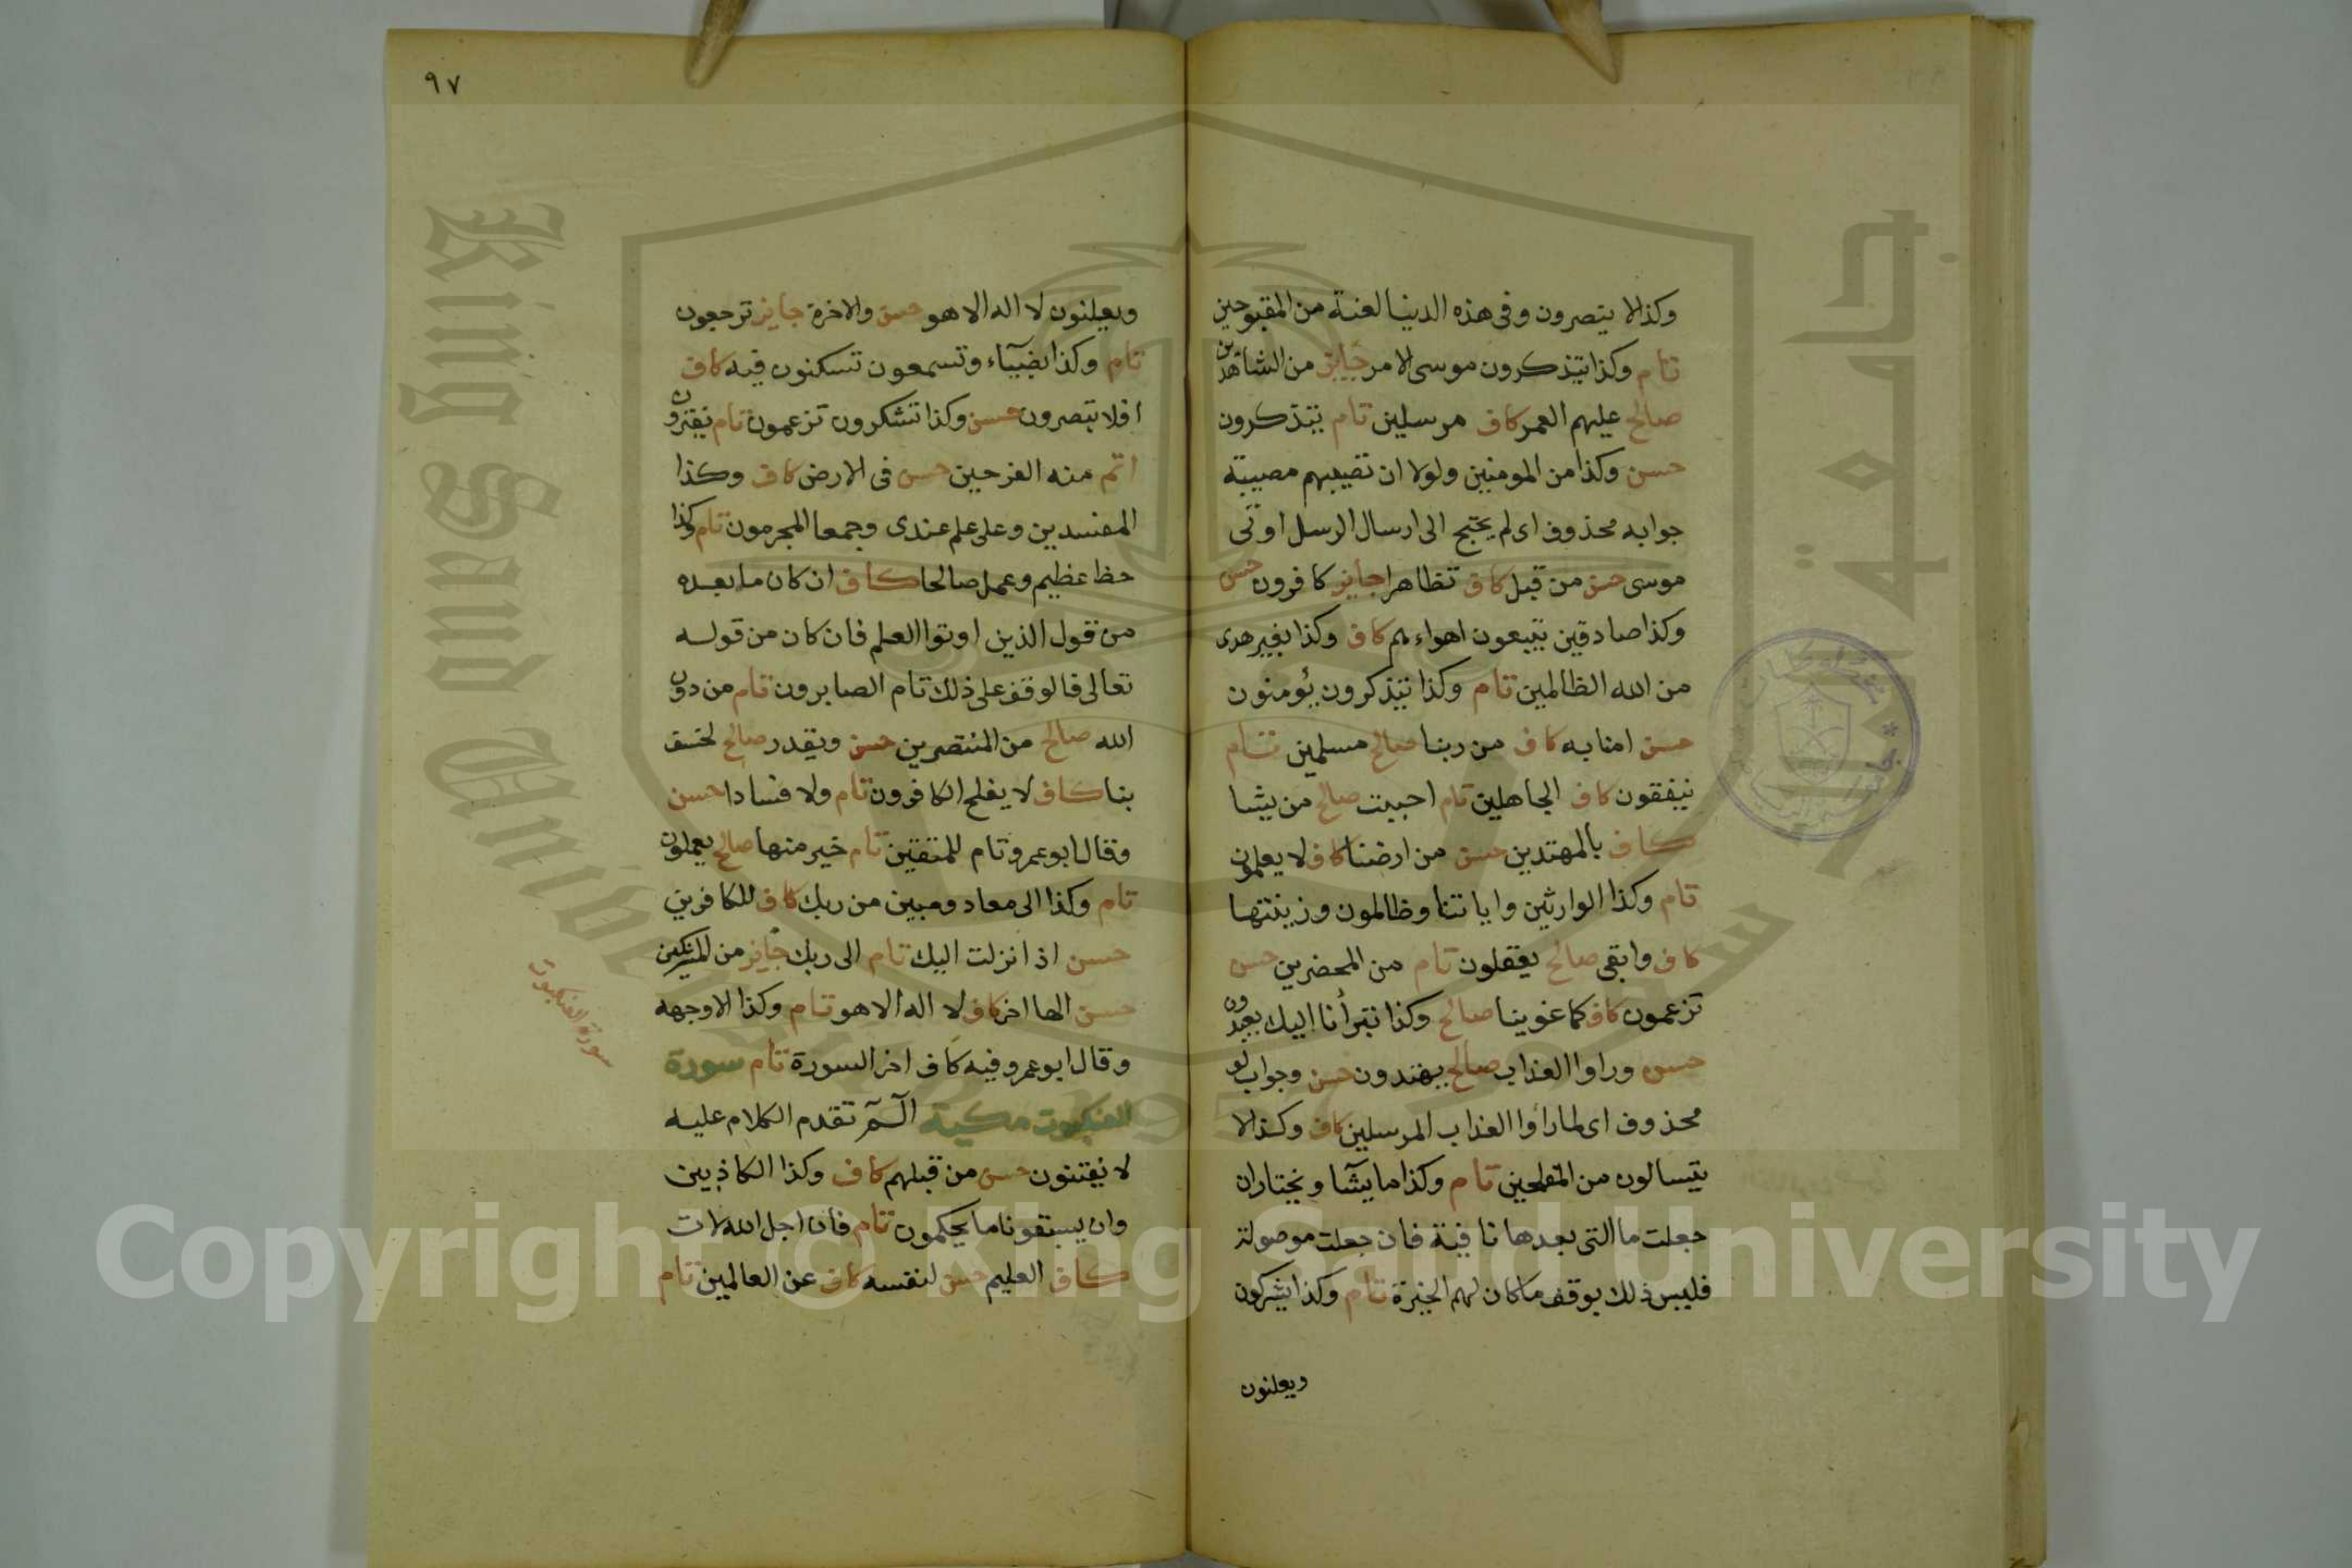 وكذا لا ينصرون وفى هذه الدنيا لعنة من المقبوحين
تام وكذا يتذكرون موسى الامر جايز من الشاهدين
صالح عليهم العمر كاف مرسلين تام يتذكرون
حسن وكذا من المومنين ولولا ان تصيبهم مصيبة
جوابه محذوف اى لم يحتج الى ارسال الرسل اوتى
موسى حسن من قبل كاف تظاهرا جايز كافرون حسن
وكذا صادقين يتبعون اهواءهم كاف وكذا بغير هدى
من الله الظالمين تام وكذا يتذكرون يؤمنون
حسن امنا به كاف من ربنا صالح مسلمين تام
ينفقون كاف الجاهلين تام احببت صالح من يشا
كاف بالمهتدين حسن من ارضنا كاف لا يعلمون
تام وكذا الوارثين واياتنا وظالمون وزينتها
كاف وابقى صالح يعقلون تام من المحضرين حسن
تزعمون كاف كما غوينا صالح وكذا تبرأنا اليك يعبدون
حسن وراوا العذاب صالح يهتدون حسن وجواب لو
محذوف اى لما رأوا العذاب المرسلين كاف وكذا لا
يتسالون من المفلحين تام وكذا ما يشآ ويختار ان
جعلت ما التى بعدها نافية فان جعلت موصولة
فليس ذلك بوقف ما كان لهم الخيرة تام وكذا يشركون
ويعلنون
٩٧
ويعلنون لا اله الا هو حسن والاخرة جايز ترجعون
تام وكذا بضيآء وتسمعون تسكنون فيه كاف
افلا تبصرون حسن وكذا تشكرون تزعمون تام يفترون
اتم منه الفرحين حسن فى الارض كاف وكذا
المفسدين وعلى علم عندى وجمعا المجرمون تام وكذا
حظ عظيم وعمل صالحا كاف ان كان ما بعده
من قول الذين اوتوا العلم فان كان من قوله
تعالى فالوقف على ذلك تام الصابرون تام من دون
الله صالح من المنتصرين حسن ويقدر صالح لخسف
بنا كاف لا يفلح الكافرون تام ولا فسادا حسن
وقال ابو عمرو تام للمتقين تام خير منها صالح يعملون
تام وكذا الى معاد ومبين من ربك كاف للكافرين
حسن اذ انزلت اليك تام الى ربك جايز من المشركين
حسن الها اخر كاف لا اله الا هو تام وكذا الا وجهه
وقال ابو عمرو فيه كاف اخر السورة تام سورة
العنكبوت مكية الٓمٓ تقدم الكلام عليه
لا يفتنون حسن من قبلهم كاف وكذا الكاذبين
وان يسبقونا ما يحكمون تام فان اجل الله لات
كاف العليم حسن لنفسه كاف عن العالمين تام
سورة العنكبوت
جامعة
King Saud University
Copyright © King Saud University